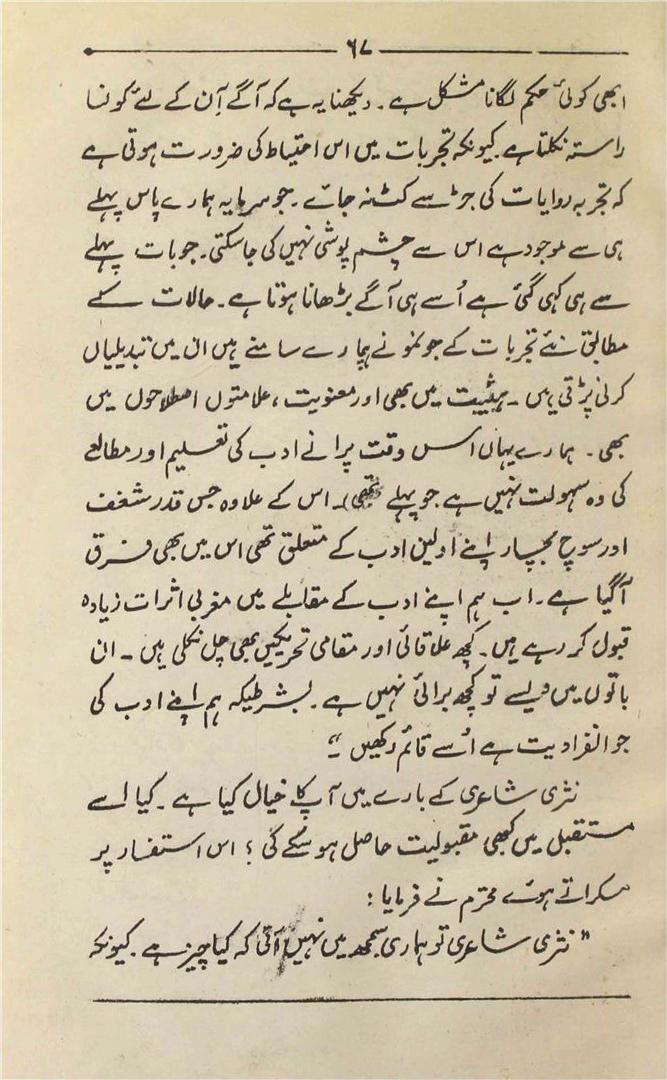 ۶۷
ابھی کوئی حکم لگانا مشکل ہے۔ دیکھنا یہ ہے کہ آگے اِن کے لئے کونسا
راستہ نکلتا ہے کیونکہ تجربات میں اس احتیاط کی ضرورت ہوتی ہے
کہ تجربہ روایات کی جڑ سے کٹ نہ جائے۔ جو سرمایہ ہمارے پاس پہلے
ہی سے موجود ہے اس سے چشم پوشی نہیں کی جا سکتی۔ جو بات پہلے
سے ہی کہی گئی ہے اُسے ہی آگے بڑھانا ہوتا ہے۔ حالات کے
مطابق نئے تجربات کے جو نمونے ہمارے سامنے ہیں ان میں تبدیلیاں
کرنی پڑتی ہیں۔ ہیئت میں بھی اور معنویت، علامتوں اصطلاحوں میں
بھی۔ ہمارے یہاں اس وقت پرانے ادب کی تعلیم اور مطالعے
کی وہ سہولت نہیں ہے جو پہلے تھی۔ اس کے علاوہ جس قدر شغف
اور سوچ بچار اپنے اولین ادب کے متعلق تھی اس میں بھی فرق
آگیا ہے۔ اب ہم اپنے ادب کے مقابلے میں مغربی اثرات زیادہ
قبول کر رہے ہیں۔ کچھ علاقائی اور مقامی تحریکیں بھی چل نکلی ہیں۔ ان
باتوں میں ویسے تو کچھ برائی نہیں ہے۔ بشرطیکہ ہم اپنے ادب کی
جو انفرادیت ہے اُسے قائم رکھیں۔"
نثری شاعری کے بارے میں آپ کا خیال کیا ہے۔ کیا اسے
مستقبل میں کبھی مقبولیت حاصل ہو سکے گی؟ اس استفسار پر
مسکراتے ہوئے محترم نے فرمایا:
"نثری شاعری تو ہماری سمجھ میں نہیں آتی کہ کیا چیز ہے۔ کیونکہ